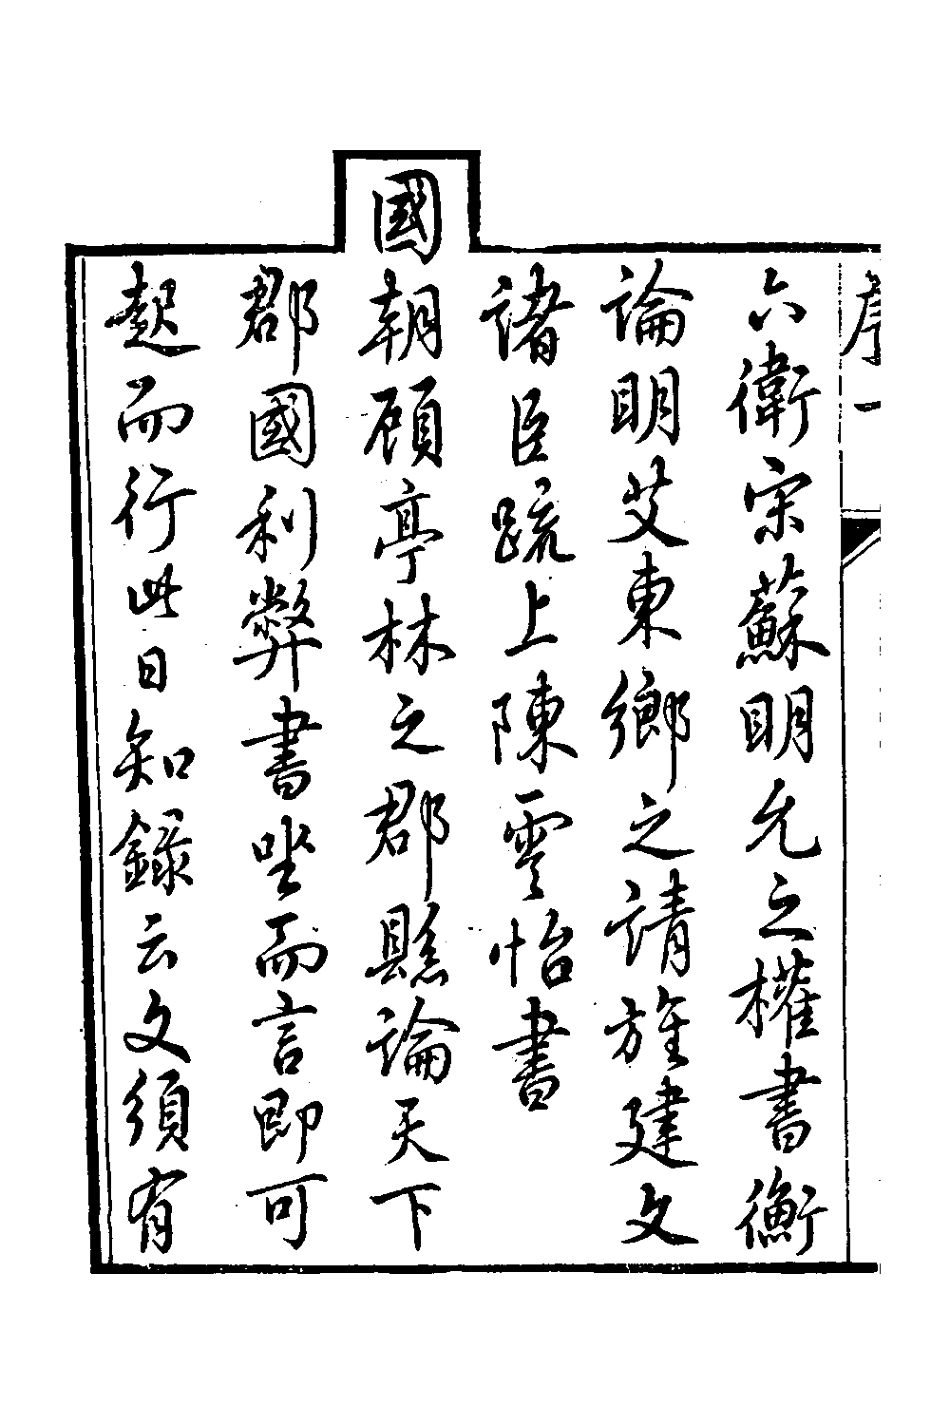 六衛宋蘇明允之權書衡
論明艾東鄉之請旌建文
諸臣疏上陳雩怡書
國朝顧亭林之郡縣論天下
郡國利弊書坐而言即可
起而行此日知錄云文須有
序一